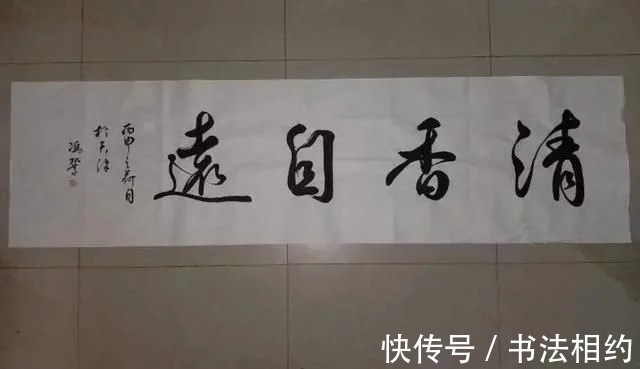 清香自遠
丙申之荷月
於天津
冯
快传号 / 书法相约